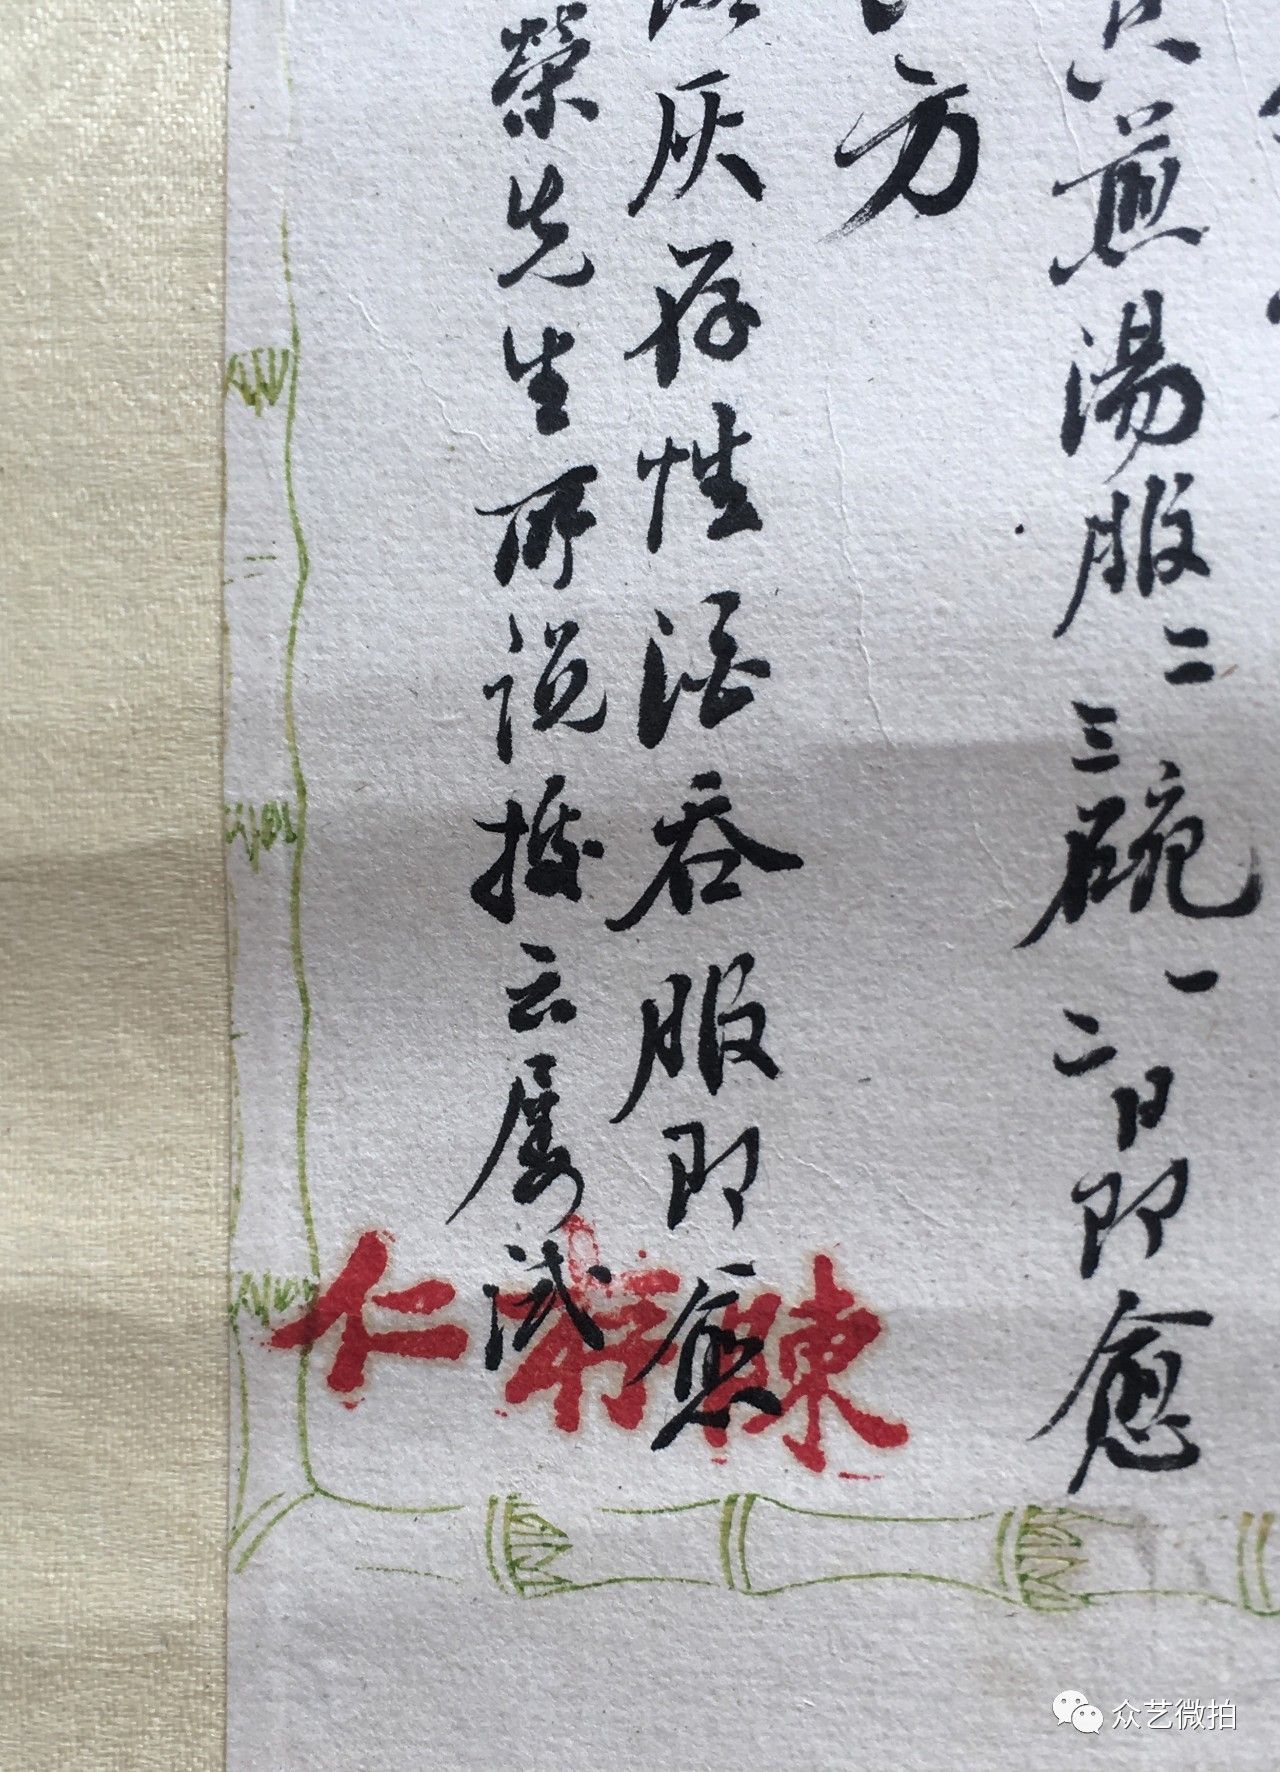 煎湯服二三碗一二日即愈
方
灰存性酒吞服即愈
榮先生所說據云屢試
陳
仁
众艺微拍